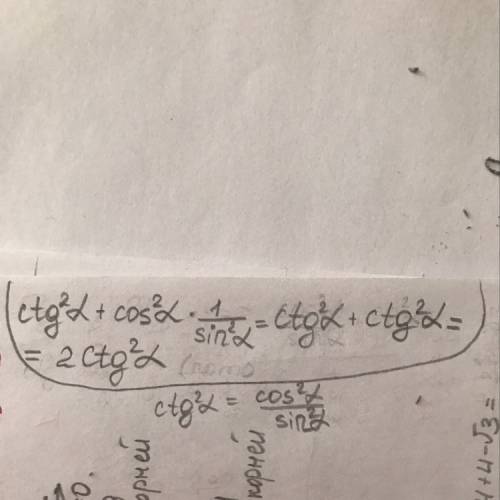 ctg²α + cos²α · 1/sin²α = ctg²α + ctg²α =
= 2ctg²α
ctg²α = cos²α/sin²α
орней
корней
+4-√3 =